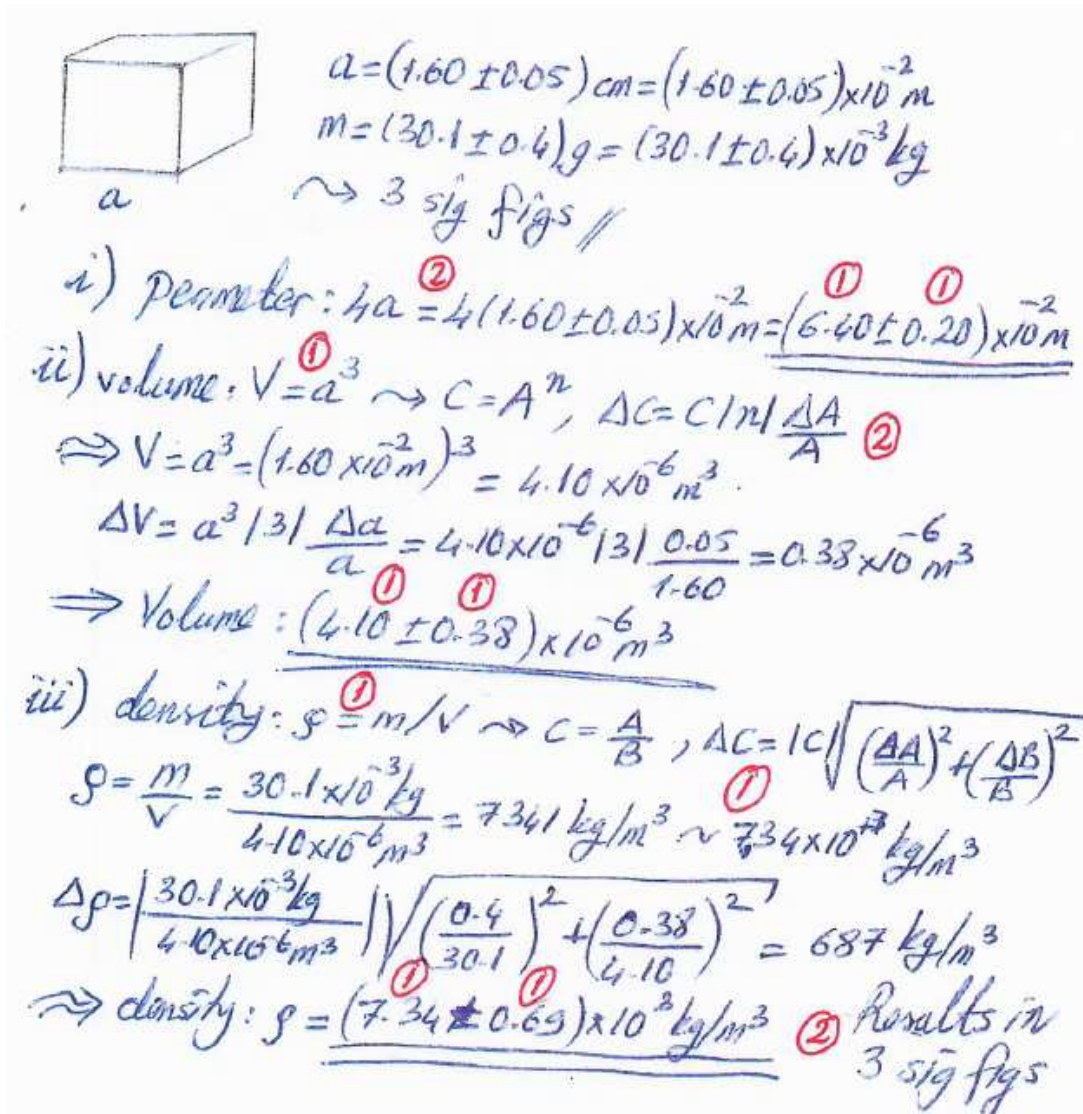 a=(1.60±0.05)cm=(1.60±0.05)×10⁻²m
m=(30.1±0.4)g=(30.1±0.4)×10⁻³kg
a
⇝ 3 sig figs //
i) perimeter: 4a ②= 4(1.60±0.05)×10⁻²m = (6.40 ① ± 0.20 ①)×10⁻²m
ii) volume: V ①= a³ ⇝ C=Aⁿ, ΔC=C|n| ΔA/A ②
⇒ V=a³=(1.60×10⁻²m)³ = 4.10×10⁻⁶m³.
ΔV= a³|3| Δa/a = 4.10×10⁻⁶|3| 0.05/1.60 = 0.38×10⁻⁶m³
⇒ Volume: (4.10 ① ± 0.38 ①)×10⁻⁶m³
iii) density: ρ ①= m/V ⇝ C= A/B, ΔC=|C|√((ΔA/A)²+(ΔB/B)²) ①
ρ= m/V = 30.1×10⁻³kg / 4.10×10⁻⁶m³ = 7341 kg/m³ ~ 7.34×10⁺³ kg/m³
Δρ=|30.1×10⁻³kg / 4.10×10⁻⁶m³|√((0.4/30.1)²+(0.38/4.10)²) = 687 kg/m³
⇝ density: ρ = (7.34 ① ± 0.69 ①)×10³kg/m³ ② Results in
3 sig figs